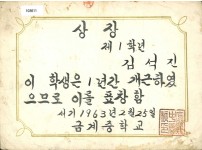 상장
제1학년
김석진
이 학생은 1년간 개근하였
으므로 이를 표창함
서기 1963년 2월 25일
금계중학교